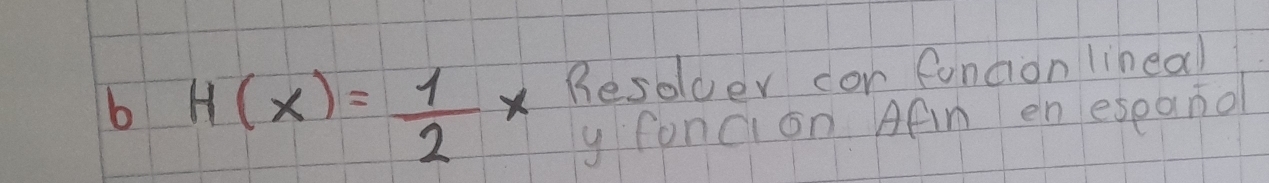 b H(x) = 1/2 x Resolver con función lineal
y función Afin en español